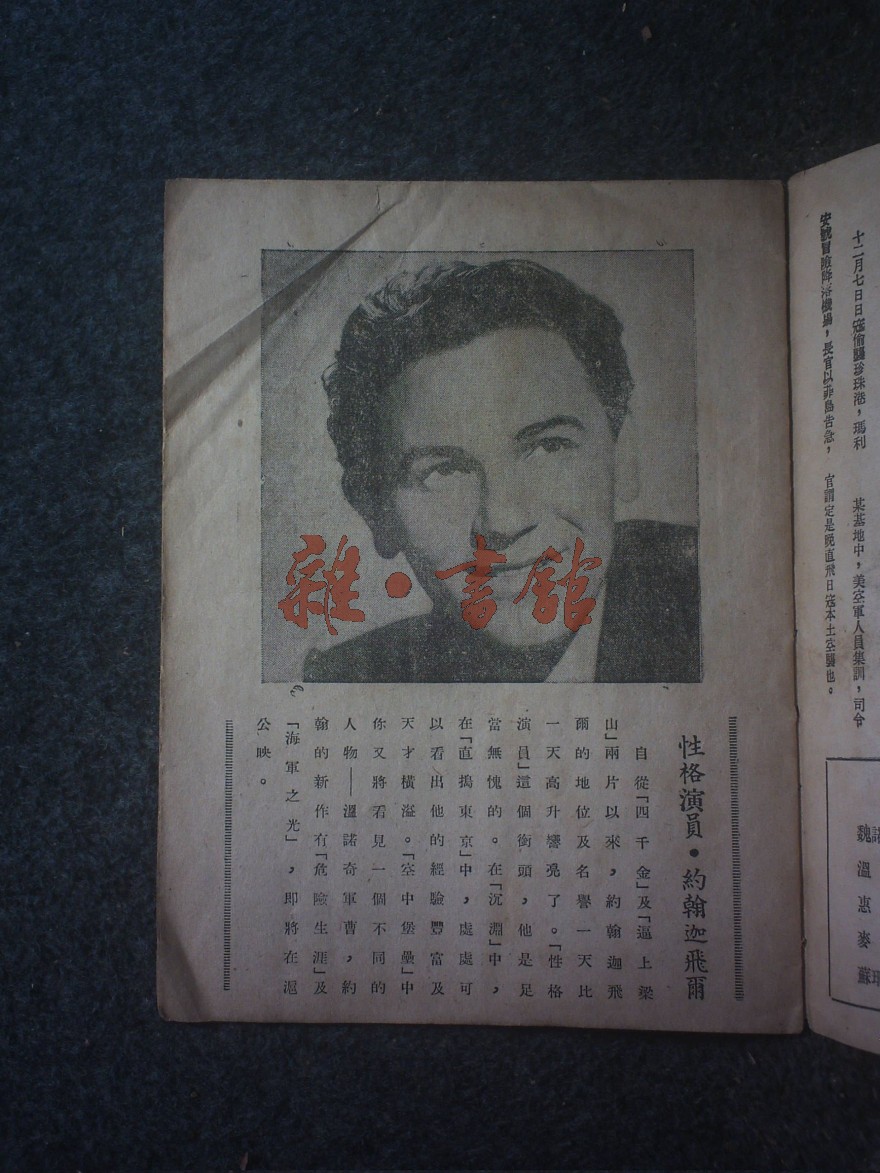 十二月七日日寇偷襲珍珠港，瑪利
安號冒險降落機場，長官以菲島告急，
某基地中，美空軍人員集訓，司令
官謂定是晚直飛日寇本土空襲也。
魏諾
溫
惠
麥
蘇瑞
性格演員•約翰迦飛爾
自從「四千金」及「逼上梁
山」兩片以來，約翰迦飛
爾的地位及名譽一天比
一天高升響亮了。「性格
演員」這個銜頭，他是足
當無愧的。在「沉淵」中，
在「直搗東京」中，處處可
以看出他的經驗豐富及
天才橫溢。「空中堡壘」中
你又將看見一個不同的
人物——溫諾奇軍曹，約
翰的新作有「危險生涯」及
「海軍之光」，即將在滬
公映。
雜•書館